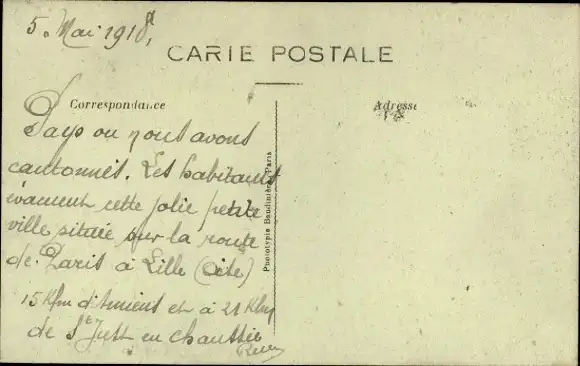 5. Mai 1918,
CARTE POSTALE
Correspondance
Adresse
Pays ou nous avons
cantonnés. Les habitants
évacuent cette jolie petite
ville située sur la route
de Paris à Lille (Oise)
15 Klm d'Amiens et à 21 Klm
de St Just en chaussée
Phototypie Baudinière, Paris